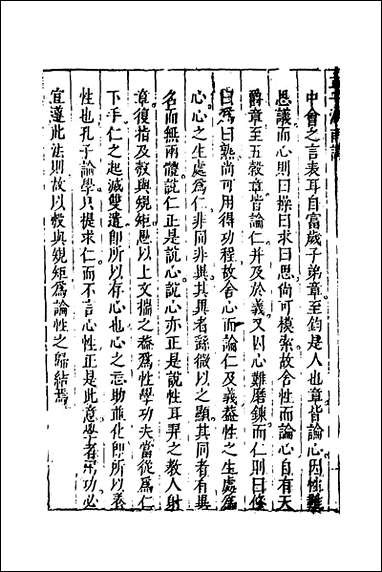 中會之言表耳自富歲子弟章至鈞是人也章皆論心因性難
思議而心則曰操曰求曰思尚可模索故合性而論心自有天
爵章至五穀章皆論仁并及於義又因心難磨鍊而仁則曰修
曰爲曰熟尚可用得功程故舍心而論仁及義蓋性之生處爲
心心之生處爲仁非同非異其異者餘微以之顯其同者有異
名而無兩體說仁正是說心說心亦正是說性耳羿之教人射
章復指及教與規矩思以上文揣之蓋爲性學功夫當從爲仁
下手仁之起滅雙遣卽所以存心也心之忘助並化卽所以養
性也孔子論學只提求仁而不言心性正是此意學者用功必
宜遵此法則故以教與規矩爲論性之歸結焉